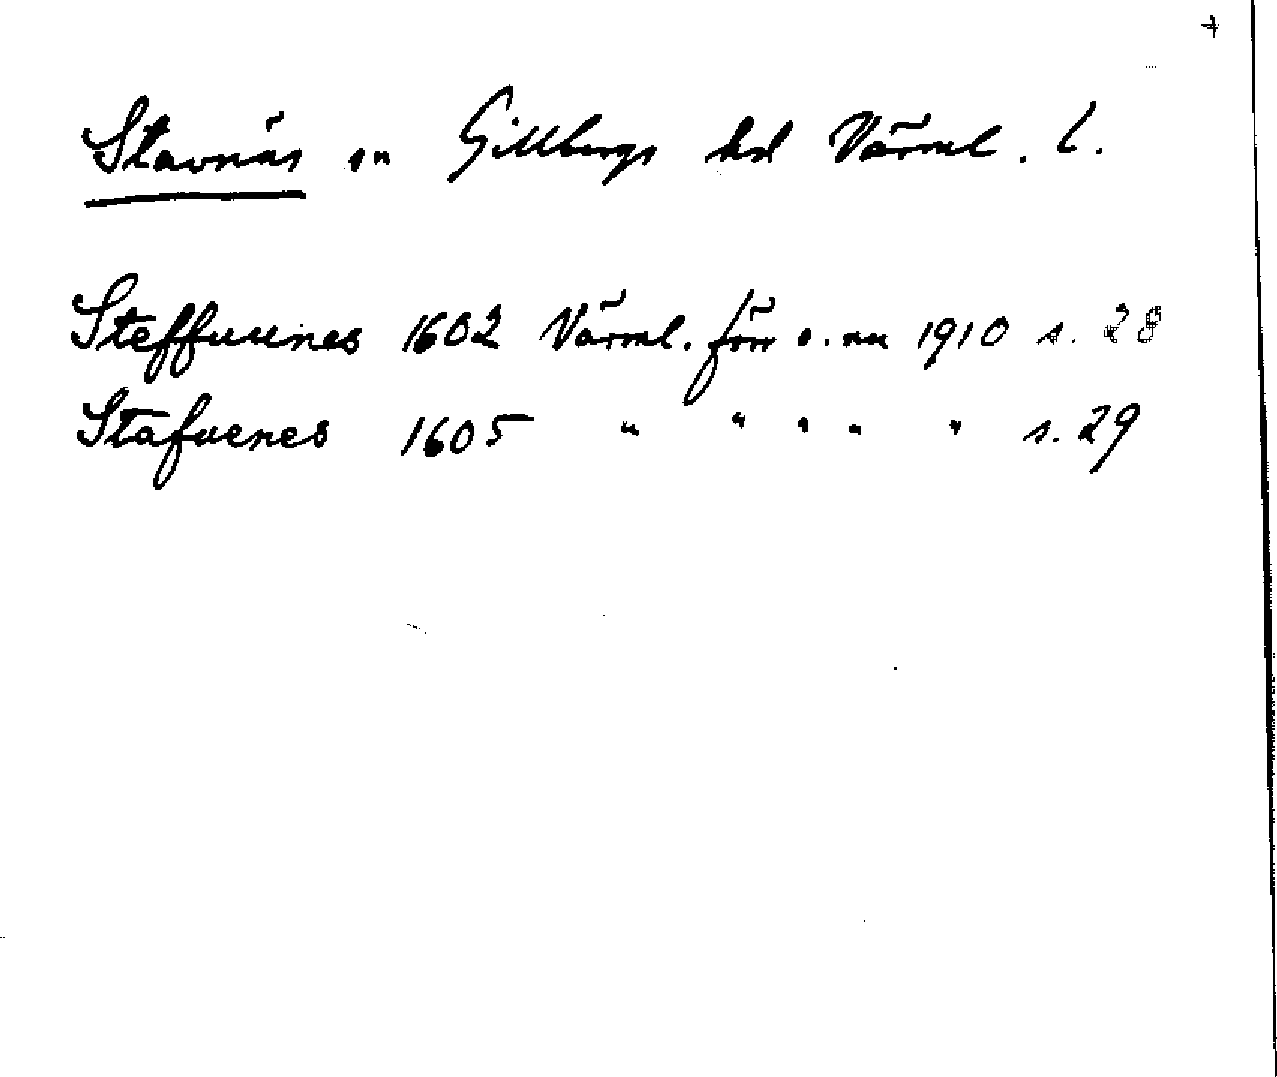 +
Stavnäs sn Gillbergs hd Värml. l.
Steffuenes 1602 Värml. förr o. nu 1910 s. 28
Stafuenes 1605 " " " " " s. 29